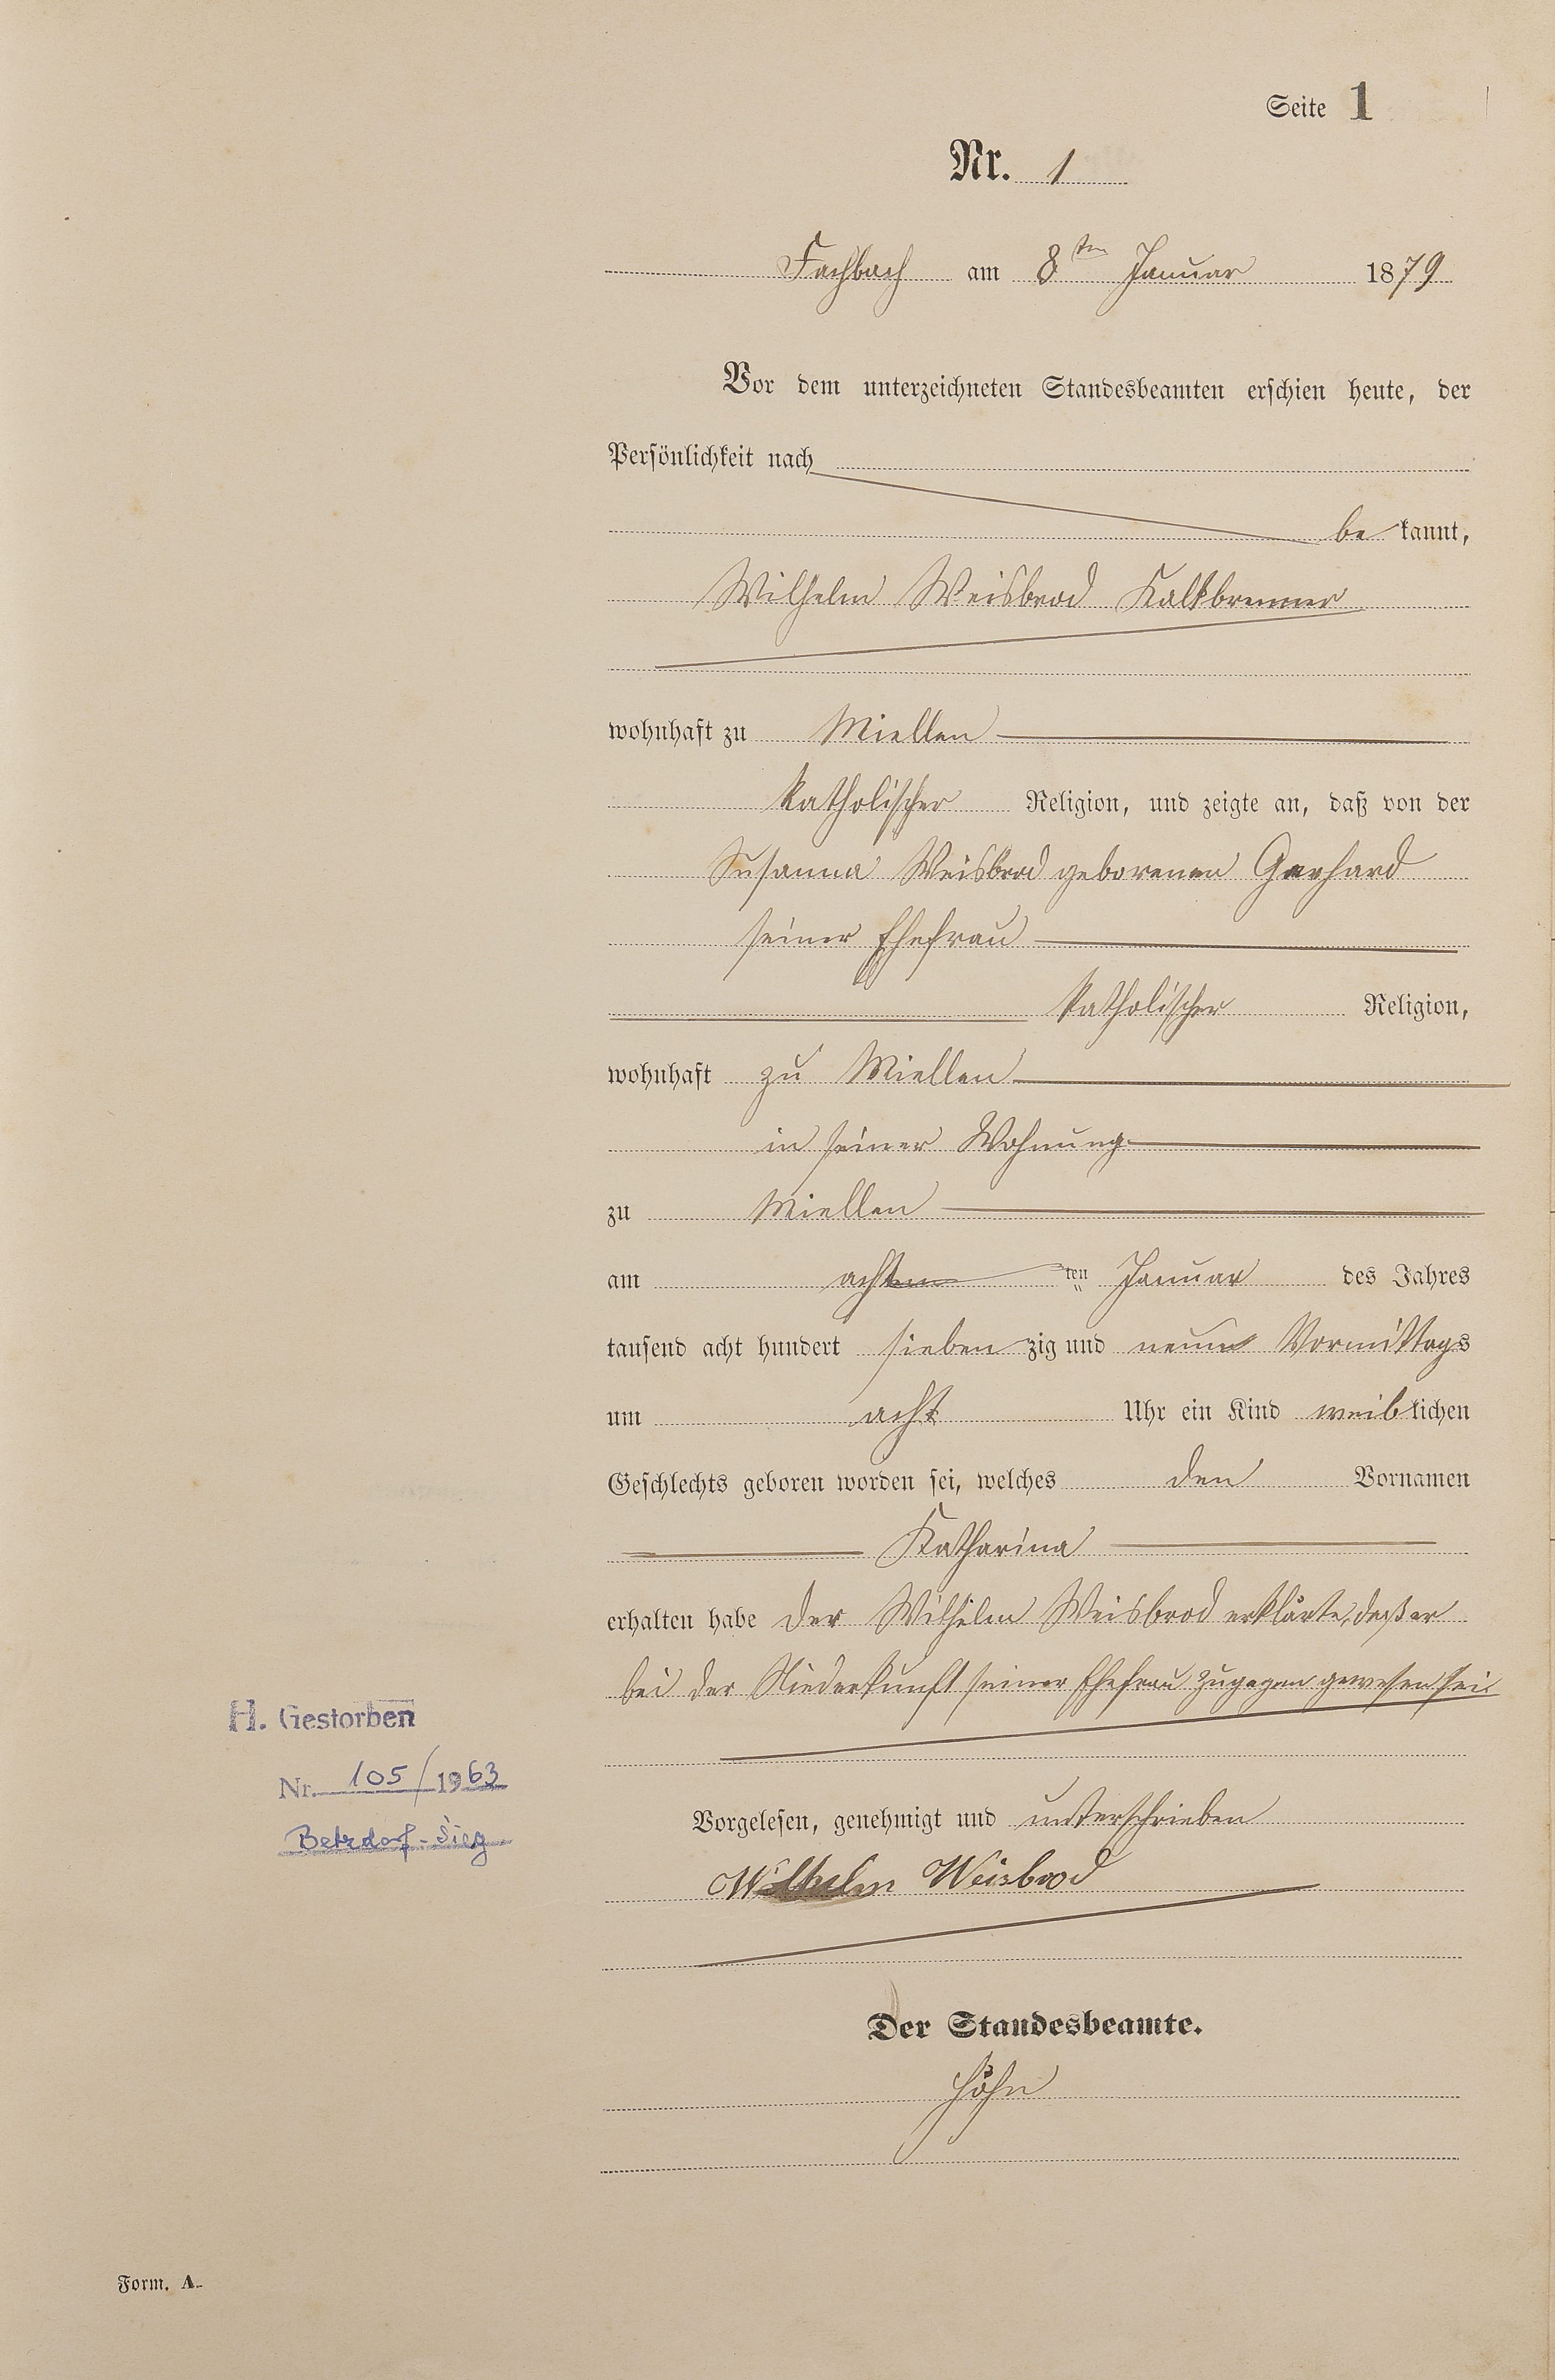 Seite 1
Nr. 1
Fachbach am 8ten Januar 1879
Vor dem unterzeichneten Standesbeamten erschien heute, der
Persönlichkeit nach
be kannt,
Wilhelm Weisbrod Kalkbrenner
wohnhaft zu Miellen
katholischer Religion, und zeigte an, daß von der
Susanna Weisbrod geborenen Gerhard
seiner Ehefrau
katholischer Religion,
wohnhaft zu Miellen
in seiner Wohnung
zu Miellen
am achten ten Januar des Jahres
tausend acht hundert sieben zig und neun Vormittags
um acht Uhr ein Kind weiblichen
Geschlechts geboren worden sei, welches den Vornamen
Katharina
erhalten habe der Wilhelm Weisbrod erklärte, daß er
bei der Niederkunft seiner Ehefrau zugegen gewesen sei
H. Gestorben
Nr. 105/1963
Betzdorf-Sieg
Vorgelesen, genehmigt und unterschrieben
Wilhelm Weisbrod
Der Standesbeamte.
Höhn
Form. A.